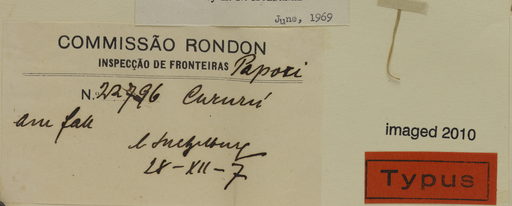 June, 1969
COMMISSÃO RONDON
INSPECÇÃO DE FRONTEIRAS Papori
N. 22796 Cururú
28-XII-7
imaged 2010
Typus